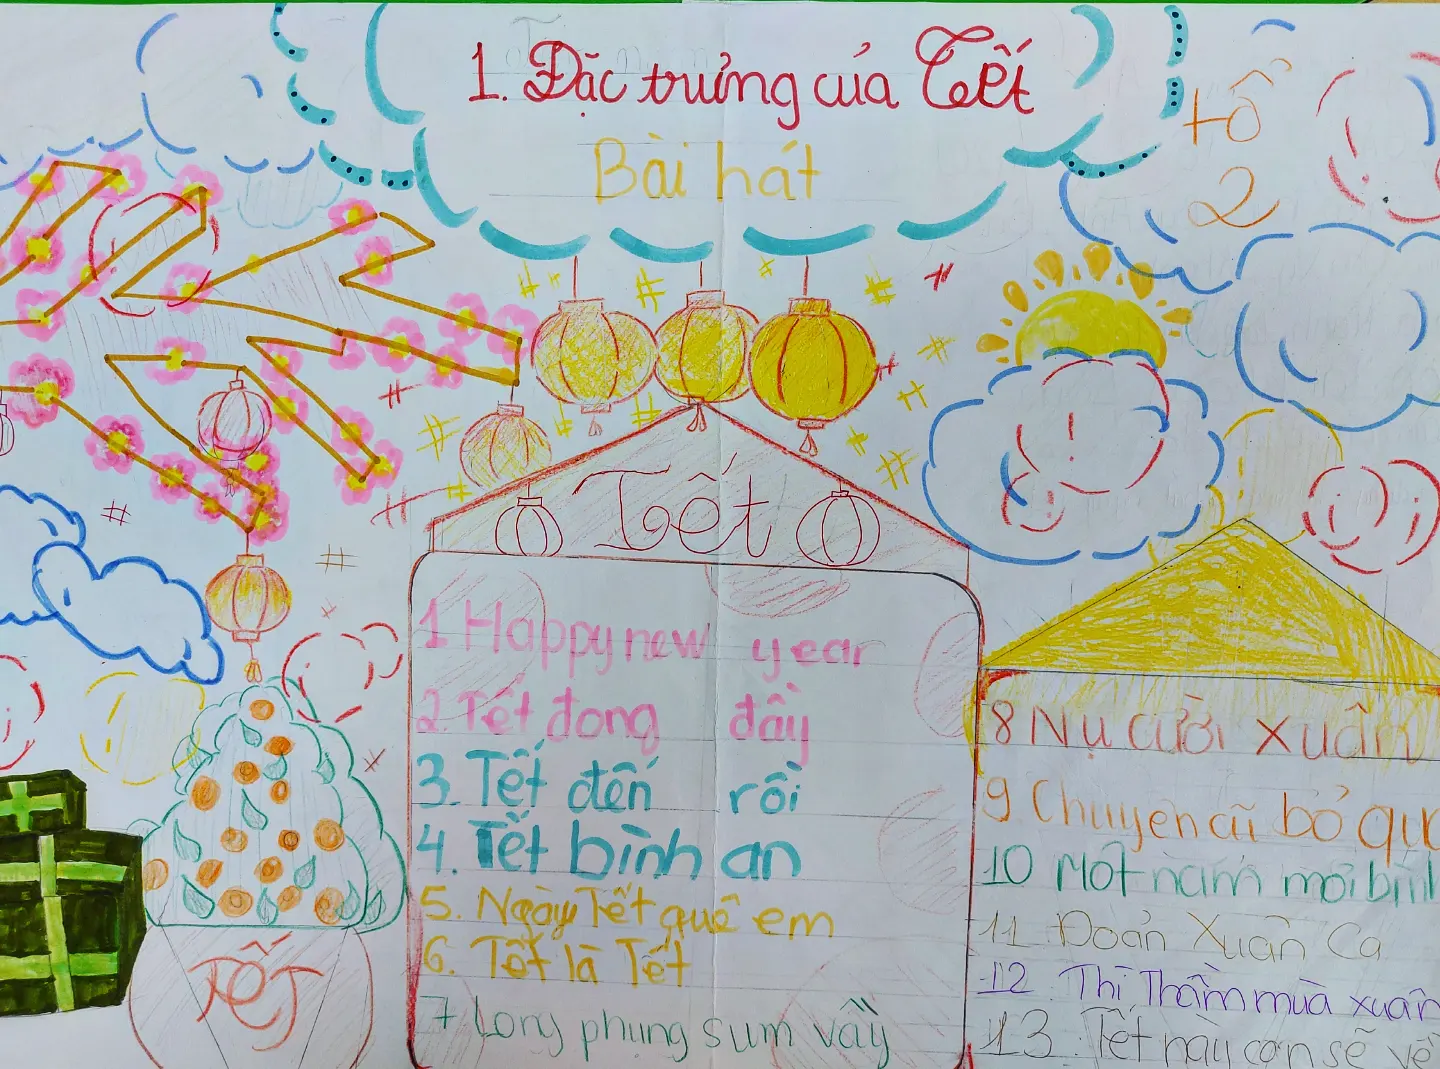 1. Đặc trưng của Tết
Bài hát
tổ
2
Tết
1 Happy new year
2. Tết đong đầy
3. Tết đến rồi
4. Tết bình an
5. Ngày Tết quê em
6. Tết là Tết
7 Long phụng sum vầy
8 Nụ cười xuân
9 Chuyện cũ bỏ qu
10 Một năm mới bình
11 Đoản Xuân Ca
12 Thì Thầm mùa xuân
13. Tết này con sẽ về
TẾT